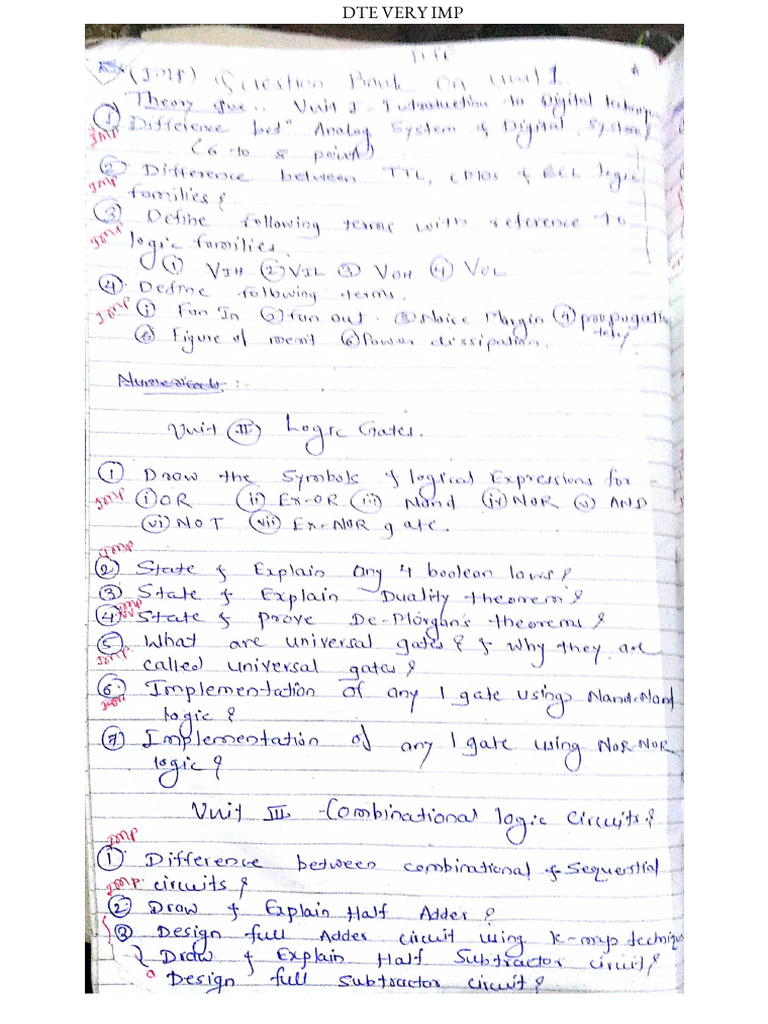 DTE VERY IMP
DTE
(IMP) Question Bank On Unit 1.
Theory Que.. Unit 1 - Introduction to Digital Technique
① Difference betn Analog System & Digital System
IMP
(6 to 8 point)
② Difference between TTL, CMOS & ECL logic
IMP
families?
③ Define following terms with reference to
IMP
logic families.
① VIH ② VIL ③ VOH ④ VOL
④ Define following terms.
IMP
① Fan In ② fan out ③ Noice Margin ④ propogation
delay
⑤ Figure of merit ⑥ Power dissipation.
Numericals :-
Unit (II) Logic Gates.
① Draw the Symbols & logical Expressions for
IMP
(i) OR (ii) Ex-OR (iii) Nand (iv) NOR (v) AND
(vi) NOT (vii) Ex-NOR gate.
IMP
② State & Explain any 4 boolean laws?
③ State & Explain Duality theorem?
IMP
④ State & prove De-Morgan's theorems?
⑤ What are universal gates? & why they are
IMP
called universal gates?
⑥ Implementation of any 1 gate using Nand-Nand
IMP
logic?
⑦ Implementation of any 1 gate using NOR-NOR
logic?
Unit III - Combinational logic Circuits?
IMP
① Difference between combinational & Sequential
IMP
circuits?
② Draw & Explain Half Adder?
③ Design full Adder circuit using K-map technique
Draw & Explain Half Subtractor circuit?
Design full subtractor circuit?